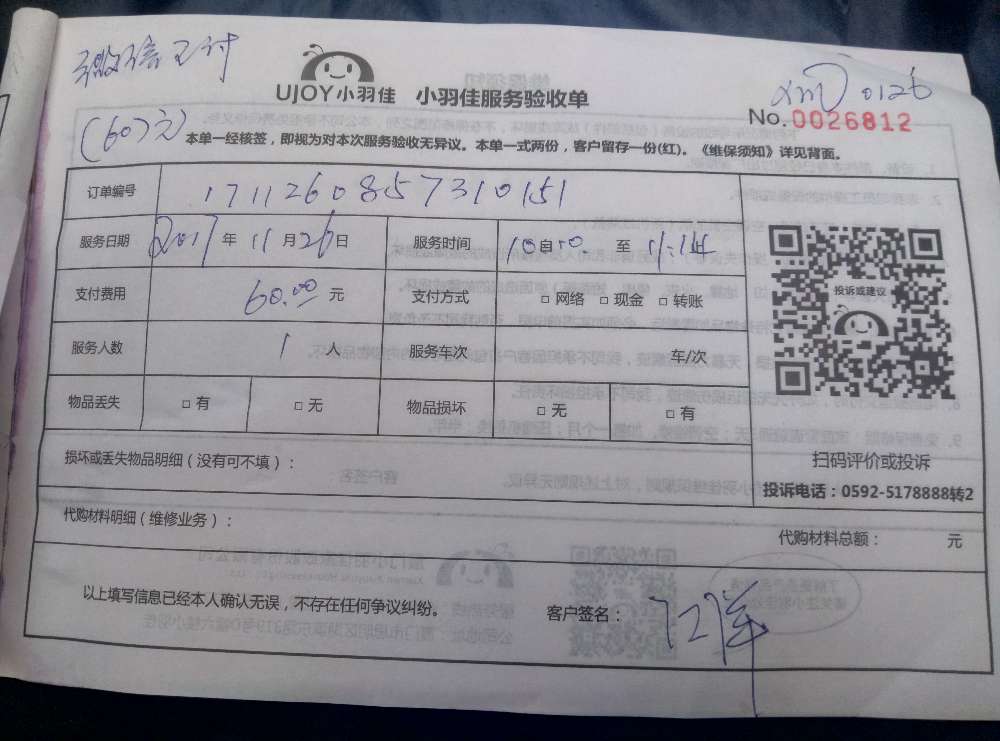 微信支付
UJOY小羽佳 小羽佳服务验收单
xm 0126
No.0026812
(60元)
本单一经核签，即视为对本次服务验收无异议。本单一式两份，客户留存一份(红)。《维保须知》详见背面。
订单编号 1711260857310151
服务日期 2017年11月26日 服务时间 至
支付费用 60.00元 支付方式 □网络 □现金 □转账
服务人数 1人 服务车次 车/次
物品丢失 □有 □无 物品损坏 □无 □有
投诉或建议
扫码评价或投诉
投诉电话：0592-5178888转2
损坏或丢失物品明细（没有可不填）：
代购材料明细（维修业务）：
代购材料总额： 元
以上填写信息已经本人确认无误，不存在任何争议纠纷。 客户签名：